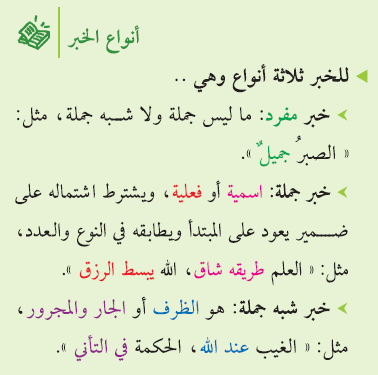 أنواع الخبر
للخبر ثلاثة أنواع وهي ..
خبر مفرد: ما ليس جملة ولا شـبه جملة، مثل:
« الصبرُ جميلٌ ».
خبر جملة: اسمية أو فعلية، ويشترط اشتماله على
ضـــمير يعود على المبتدأ ويطابقه في النوع والعدد،
مثل: « العلم طريقه شاق، الله يبسط الرزق ».
خبر شبه جملة: هو الظرف أو الجار والمجرور،
مثل: « الغيب عند الله، الحكمة في التأني ».